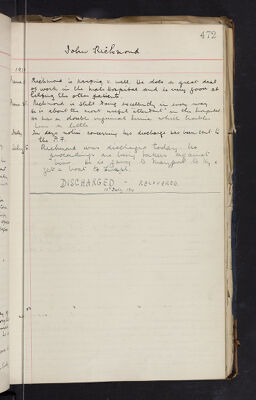 472
John Richmond
1911
June Richmond is keeping well. He does a great deal
of work in the male hospital and is very good at
helping the other patients.
Richmond is still doing excellently in every way
he is about the most useful attendant in the hospital
He has a double inguinal hernia which troubles
him a little.
July 10 days notice concerning his discharge has been sent to
the P.F.
July Richmond was discharged today. No
proceedings are being taken against
him. He is going to to try &
get a boat to
DISCHARGED - RECOVERED.
July 1911